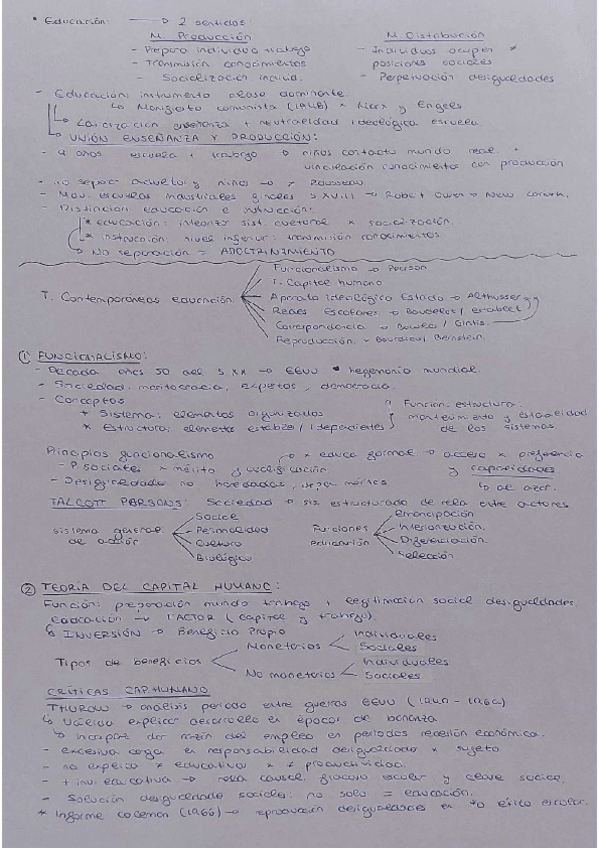 * Educación: → 2 sentidos:
M. Producción M. Distribución
- Prepara individuo trabajo - Individuos ocupen ≠
- Transmisión conocimientos posiciones sociales
- Socialización individ. - Perpetuación desigualdades
- Educación: instrumento clase dominante
↳ Manifiesto comunista (1848) × Marx y Engels
↳ Laicización enseñanza + neutralidad ideológica escuela
↳ UNIÓN ENSEÑANZA Y PRODUCCIÓN:
- 4 años escuela + trabajo → niños contacto mundo real +
vinculación conocimientos con producción
- No separar adultos y niños → ≠ Rousseau
- Mov. escuelas industriales finales S.XVIII → Robert Owen → New Lanark.
- Distinción educación e instrucción:
* educación: integrar sist. cultural × socialización.
* instrucción: nivel inferior: transmisión conocimientos
↳ No separación = ADOCTRINAMIENTO
T. Contemporáneas educación
Funcionalismo → Parson
T. Capital humano
Aparato Ideológico Estado → Althusser
Redes Escolares → Baudelot / Establet
Correspondencia → Bowles / Gintis.
Reproducción → Bourdieu / Bernstein.
① FUNCIONALISMO:
- Década años 50 del S.XX → EEUU hegemonía mundial.
- Sociedad: meritocracia, expertos, democracia.
- Conceptos
* Sistema: elementos organizados
* Estructura: elementos estables / Idependientes
Función: estructura.
mantenimiento y estabilidad
de los sistemas
Principios funcionalismo × educa formal → acceso × preferencia
- P. sociales × mérito y cualificación y capacidades
- Desigualdades no heredadas, méritos
TALCOTT PARSONS: Sociedad → sis estructurado de rela entre actores
sistema general de acción
Social
Personalidad
Cultura
Biológico
Funciones educación
Emancipación
Interiorización.
Diferenciación
Selección.
② TEORÍA DEL CAPITAL HUMANO:
Función: preparación mundo trabajo + legitimación social desigualdades.
educación → FACTOR (capital y trabajo)
↳ INVERSIÓN → Beneficio Propio
Tipos de beneficios
Monetarios
Individuales
Sociales
No monetarios
Individuales
Sociales
CRÍTICAS CAP. HUMANO
THUROW → análisis periodo entre guerras EEUU
↳ Válida explicar desarrollo en épocas de bonanza
↳ Incapaz dar razón del empleo en periodos recesión económica.
- excesiva carga en responsabilidad desigualdad × sujeto
- no explica ≠ educativas × ≠ productividad.
- + inv. educativa → rela causal, fracaso escolar y clase social.
- Solución desigualdades sociales: no solo = educación.
* Informe Coleman (1966) → reproducción desigualdades en éxito escolar.